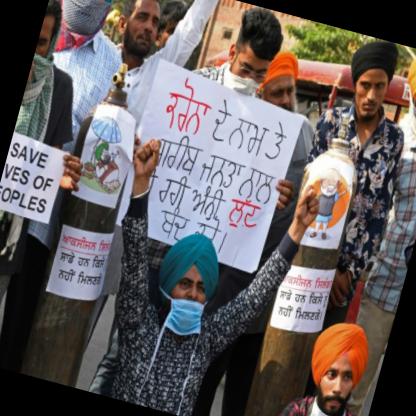 SAVE
VES OF
EOPLES
ਕਰੋਨਾ ਦੇ ਨਾਮ ਤੇ
ਗਰੀਬ ਜਨਤਾ ਨਾਲ
ਹੋ ਰਹੀ ਅੰਨੀ ਲੁੱਟ
ਬੰਦ ਕਰੋ।
ਆਕਸੀਜਨ
ਸਾਡੇ ਹਨ ਕਿਸੇ
ਨਹੀਂ ਮਿਲਣਗੇ!
ਆਕਸੀਜਨ ਸਿਲੰਡਰ
ਸਾਡੇ ਹਨ ਕਿਸੇ ਨੂੰ
ਨਹੀਂ ਮਿਲਣਗੇ!